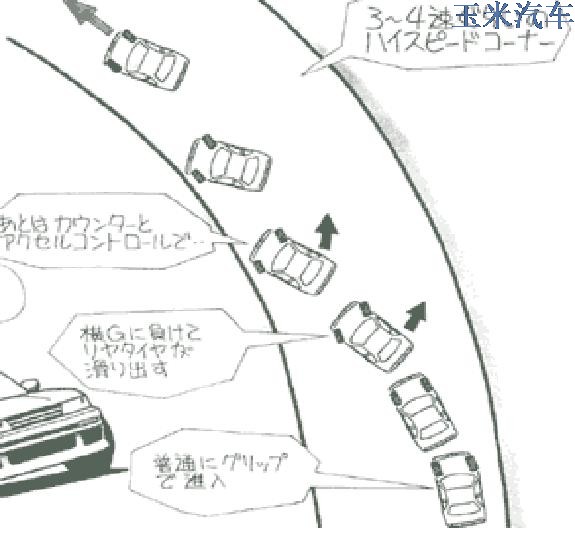 玉米汽车
3～4速
ハイスピードコーナー
あとはカウンターと
アクセルコントロールで…
横Gに負けて
リヤタイヤが
滑り出す
普通にグリップ
で進入